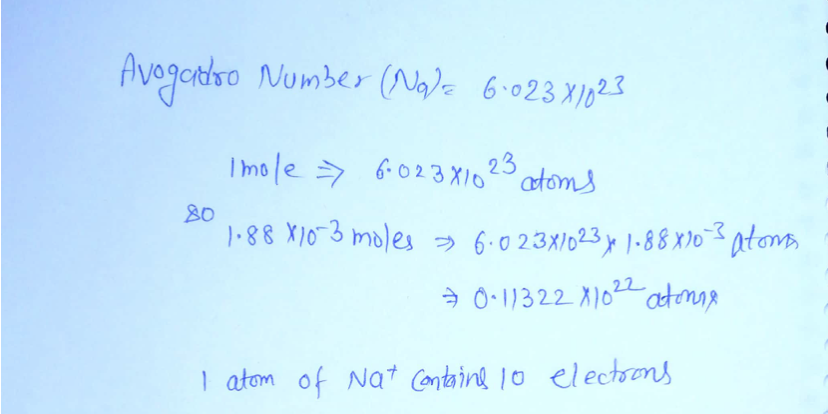 Avogadro Number (Na) = 6.023 X 10^23
1 mole ⇒ 6.023 X 10^23 atoms
so
1.88 X 10^-3 moles ⇒ 6.023 X 10^23 X 1.88 X 10^-3 atoms
⇒ 0.11322 X 10^22 atoms
1 atom of Na+ contains 10 electrons